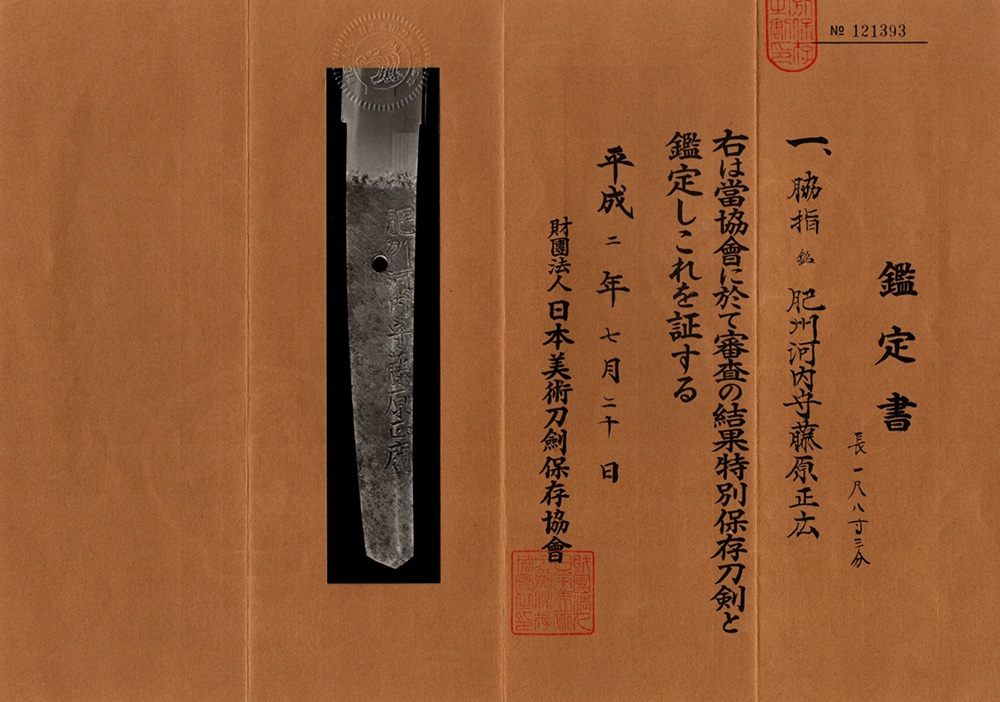 № 121393
鑑定書
一、脇指 銘 肥州河内守藤原正広
長一尺八寸三分
右は當協會に於て審査の結果特別保存刀劍と
鑑定しこれを証する
平成二年七月二十日
財團法人日本美術刀劍保存協會
肥州河内守藤原正廣